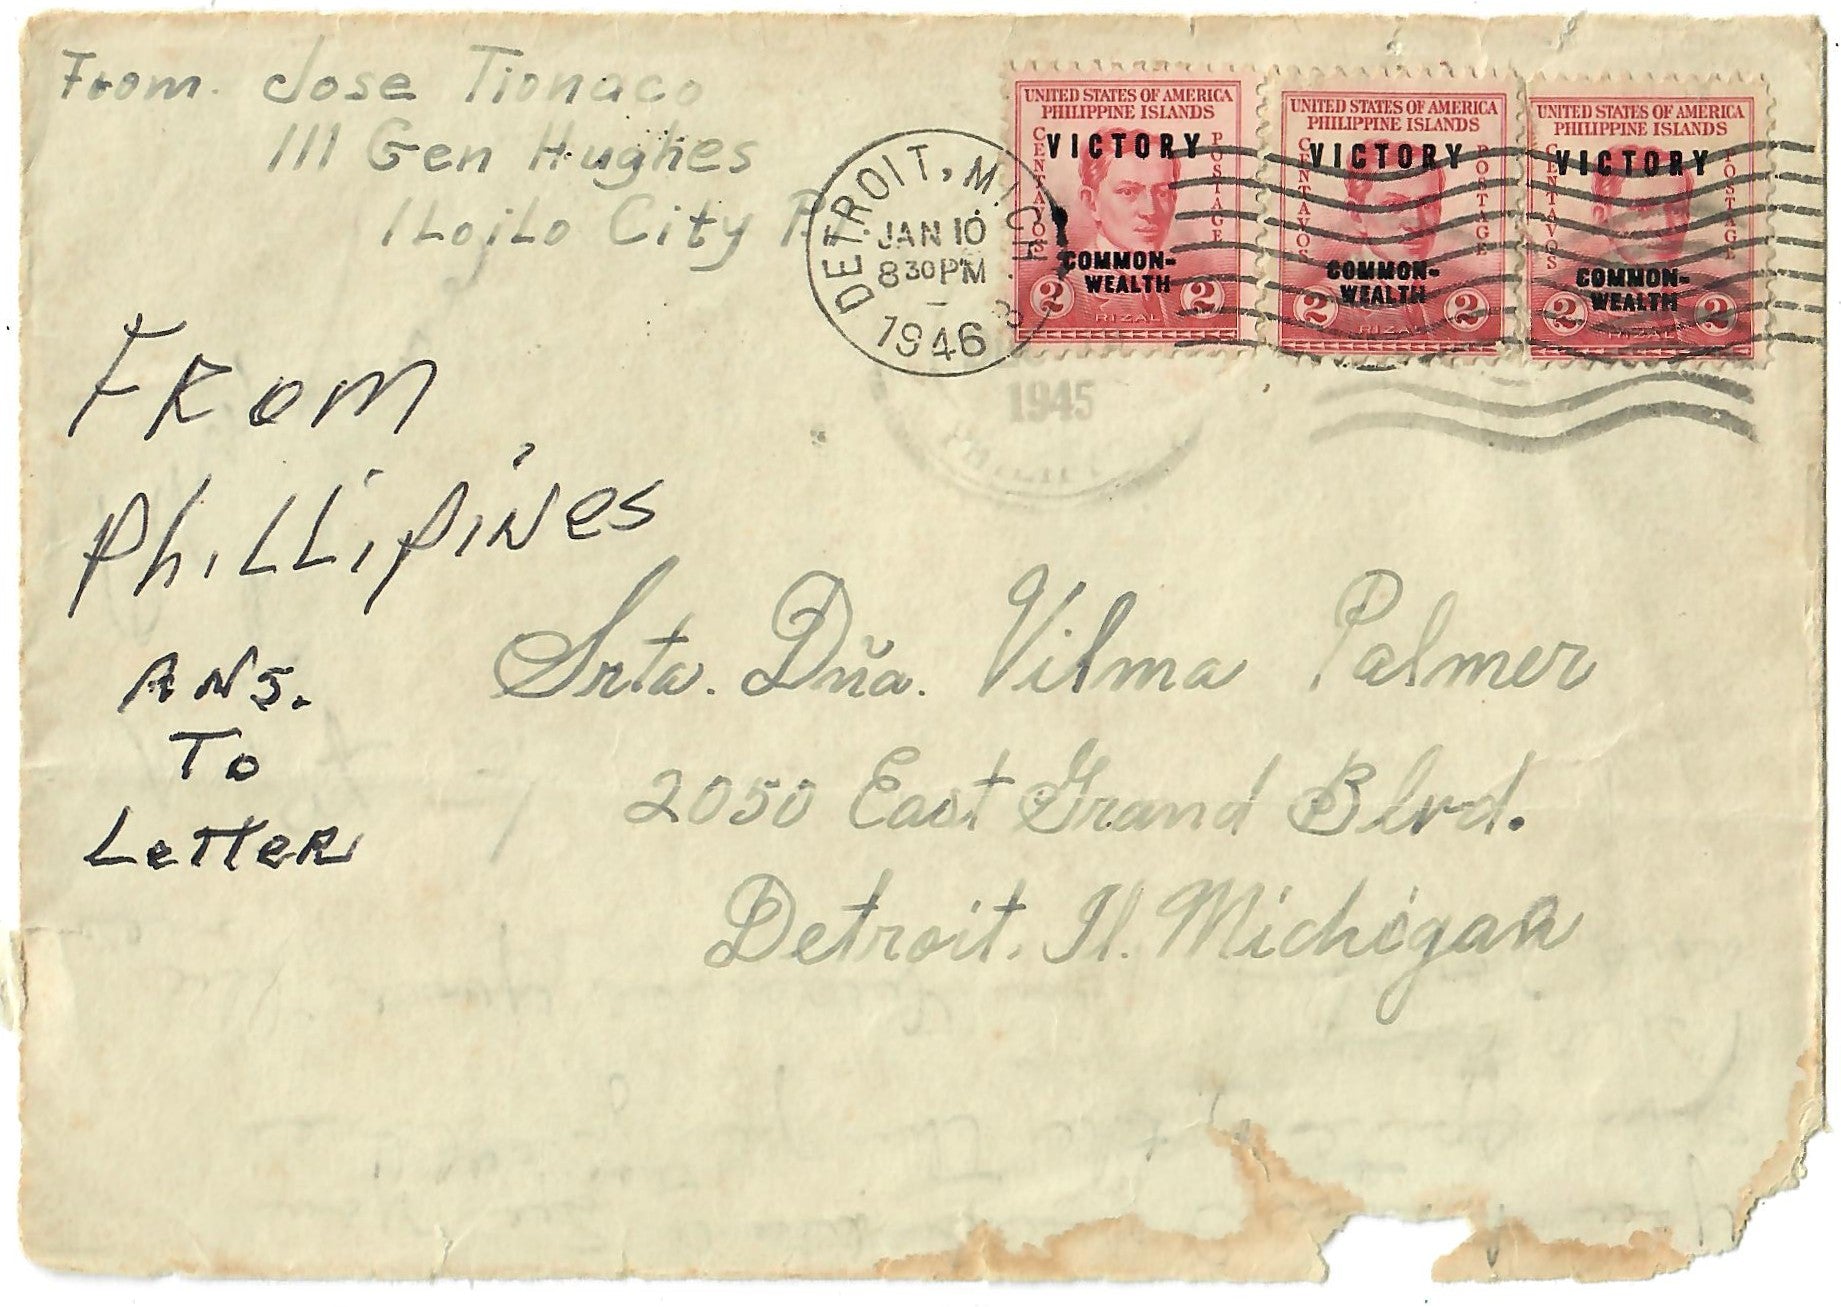 From. Jose Tionaco
111 Gen Hughes
ILojLo City P.I.
DETROIT, MICH.
JAN 10
8 30 PM
1946
3
1945
UNITED STATES OF AMERICA
PHILIPPINE ISLANDS
CENTAVOS
POSTAGE
VICTORY
COMMON-
WEALTH
2 2
RIZAL
UNITED STATES OF AMERICA
PHILIPPINE ISLANDS
CENTAVOS
POSTAGE
VICTORY
COMMON-
WEALTH
2 2
RIZAL
UNITED STATES OF AMERICA
PHILIPPINE ISLANDS
CENTAVOS
POSTAGE
VICTORY
COMMON-
WEALTH
2 2
RIZAL
FRom
PhiLLipiNes
ANS.
To
LeTTeR
Srta. Dña. Vilma Palmer
2050 East Grand Blvd.
Detroit. Il. Michigan